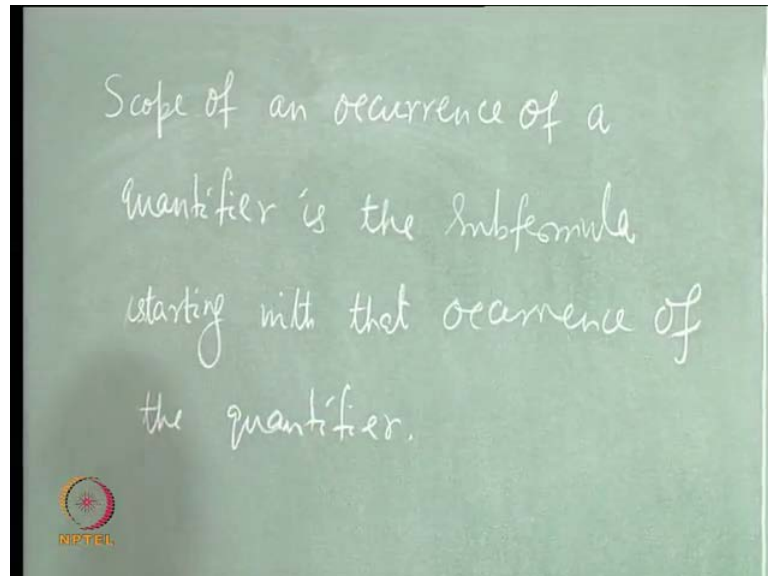 Scope of an occurrence of a
quantifier is the subformula
starting with that occurrence of
the quantifier.
NPTEL